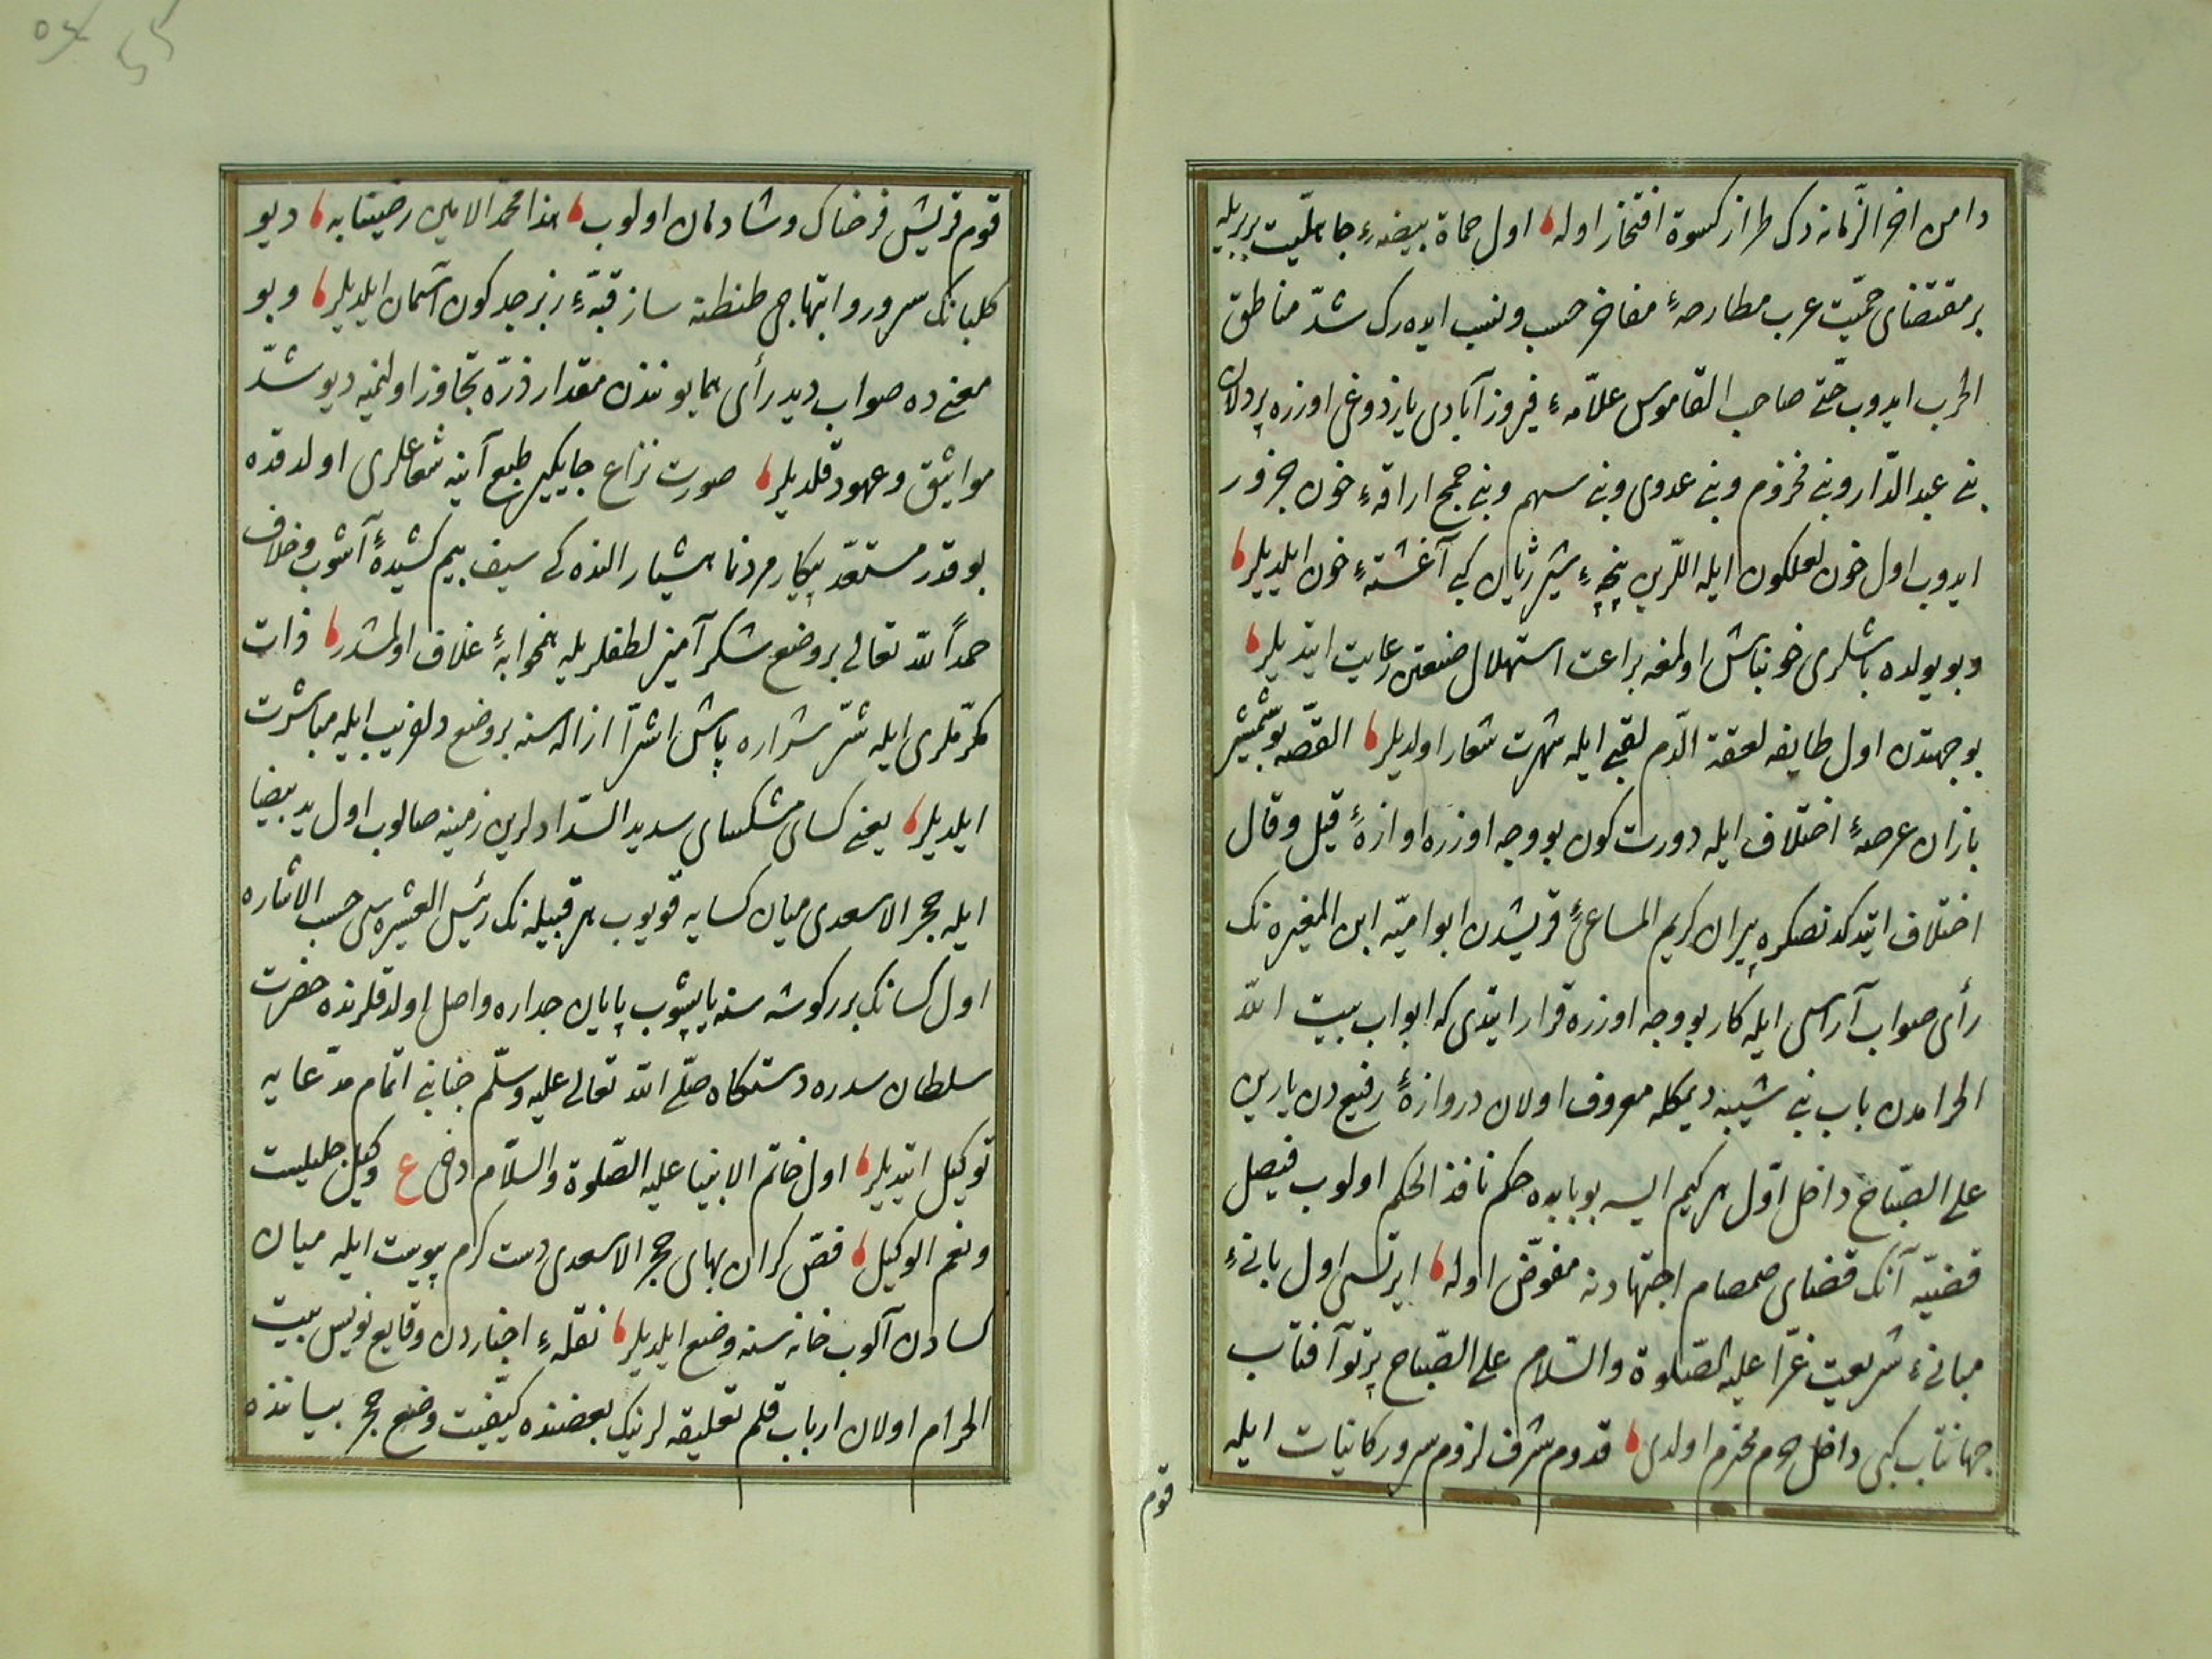 دامن اخر الزمانه دك طراز كسوة افتخار اوله اول حماة بيضهٔ جاهليت بربريله
بر مقتضاى حميت عرب مطارحهٔ مفاخر حسب ونسب ايده رك شدّ مناطق
الحرب ايدوب حتى صاحب القاموس علامهٔ فيروز آبادى يازدوغى اوزره پردلان
بنى عبد الدّار وبنى مخزوم وبنى عدوى وبنى سهم وبنى جمح اراقهٔ خون جزور
ايدوب اول خون لعلكون ايله اللرين پنجهٔ شير ژيان كبى آغشتهٔ خون ايلديلر
وبو يولده باشلرى خونپاش اولمغه براعت استهلال صنعتن رعايت ايتديلر
بو جهتدن اول طايفه لعقة الدّم لقبى ايله شهرت شعار اولديلر القصّه بو شمشير
بازان عرصهٔ اختلاف ايله دورت كون بو وجه اوزره اوازهٔ قيل وقال
اختلاف ايتدكدنصكره پيران كريم المساعئ قريشدن ابو اميّه ابن المغيره نك
رأى صواب آراسى ايله كار بو وجه اوزره قرار ايتدى كه ابواب بيت الله
الحرامدن باب بنى شيبه ديمكله معروف اولان دروازهٔ رفيع دن يارين
على الصّباح داخل اوّل هر كيم ايسه بو بابده حكم نافذ الحكم اولوب فيصل
قضيّه آنك قضاى صمصام اجتهادنه مفوّض اوله ايرتسى اول بانئ
مبانئ شريعت غرّا عليه الصّلوة والسّلام على الصّباح پرتو آفتاب
جهانتاب كبى داخل حرم محترم اولدى قدوم شرف لزوم سرور كائنات ايله
قوم
قوم قريش فرحناك وشادمان اولوب هذا محمد الامين رضينا به ديو
كلبانك سرور وابتهاجى طنطنه ساز قبّهٔ زبرجد كون آسمان ايلديلر وبو
معنى ده صواب ديد رأى همايوندن مقدار ذرّه تجاوز اولنميه ديو شدّ
مواثيق وعهود قلديلر صورت نزاع جايكير طبع آينه شعاعلرى اولدقده
بو قدر مستعدّ پيكار مردنما هشيار النده كى سيف بيم كشيدهٔ آشوب وخلاف
حمداً لله تعالى بر وضع شكر آميز لطفلريله همخوابهٔ غلاف اولمشدر ذات
مكرّملرى ايله شرّ شراره پاش اشرّا ازاله سنه بر وضع دلفريب ايله مباشرت
ايلديلر يعنى كساى مشكساى سديد السّدادلرين زمينه صالوب اول يد بيضا
ايله حجر الاسعدى ميان كسايه قويوب هر قبيله نك رئيس العشيره سى حسب الاشاره
اول كسانك برر كوشه سنه ياپيشوب پايان جداره واصل اولدقلرنده حضرت
سلطان سدره دستكاه صلّى الله تعالى عليه وسلّم جنابنى اتمام مدّعايه
توكيل ايتديلر اول خاتم الانبيا عليه الصّلوة والسّلام دخى ع وكيل جليليت
ونعم الوكيل فصّ كران بهاى حجر الاسعدى دست كرم پيوست ايله ميان
كسادن آلوب خانه سنه وضع ايلديلر نقلهٔ اخباردن وقايع نويس بيت
الحرام اولان ارباب قلم تعليقه لرينك بعضنده كيفيت وضع حجر بياننده